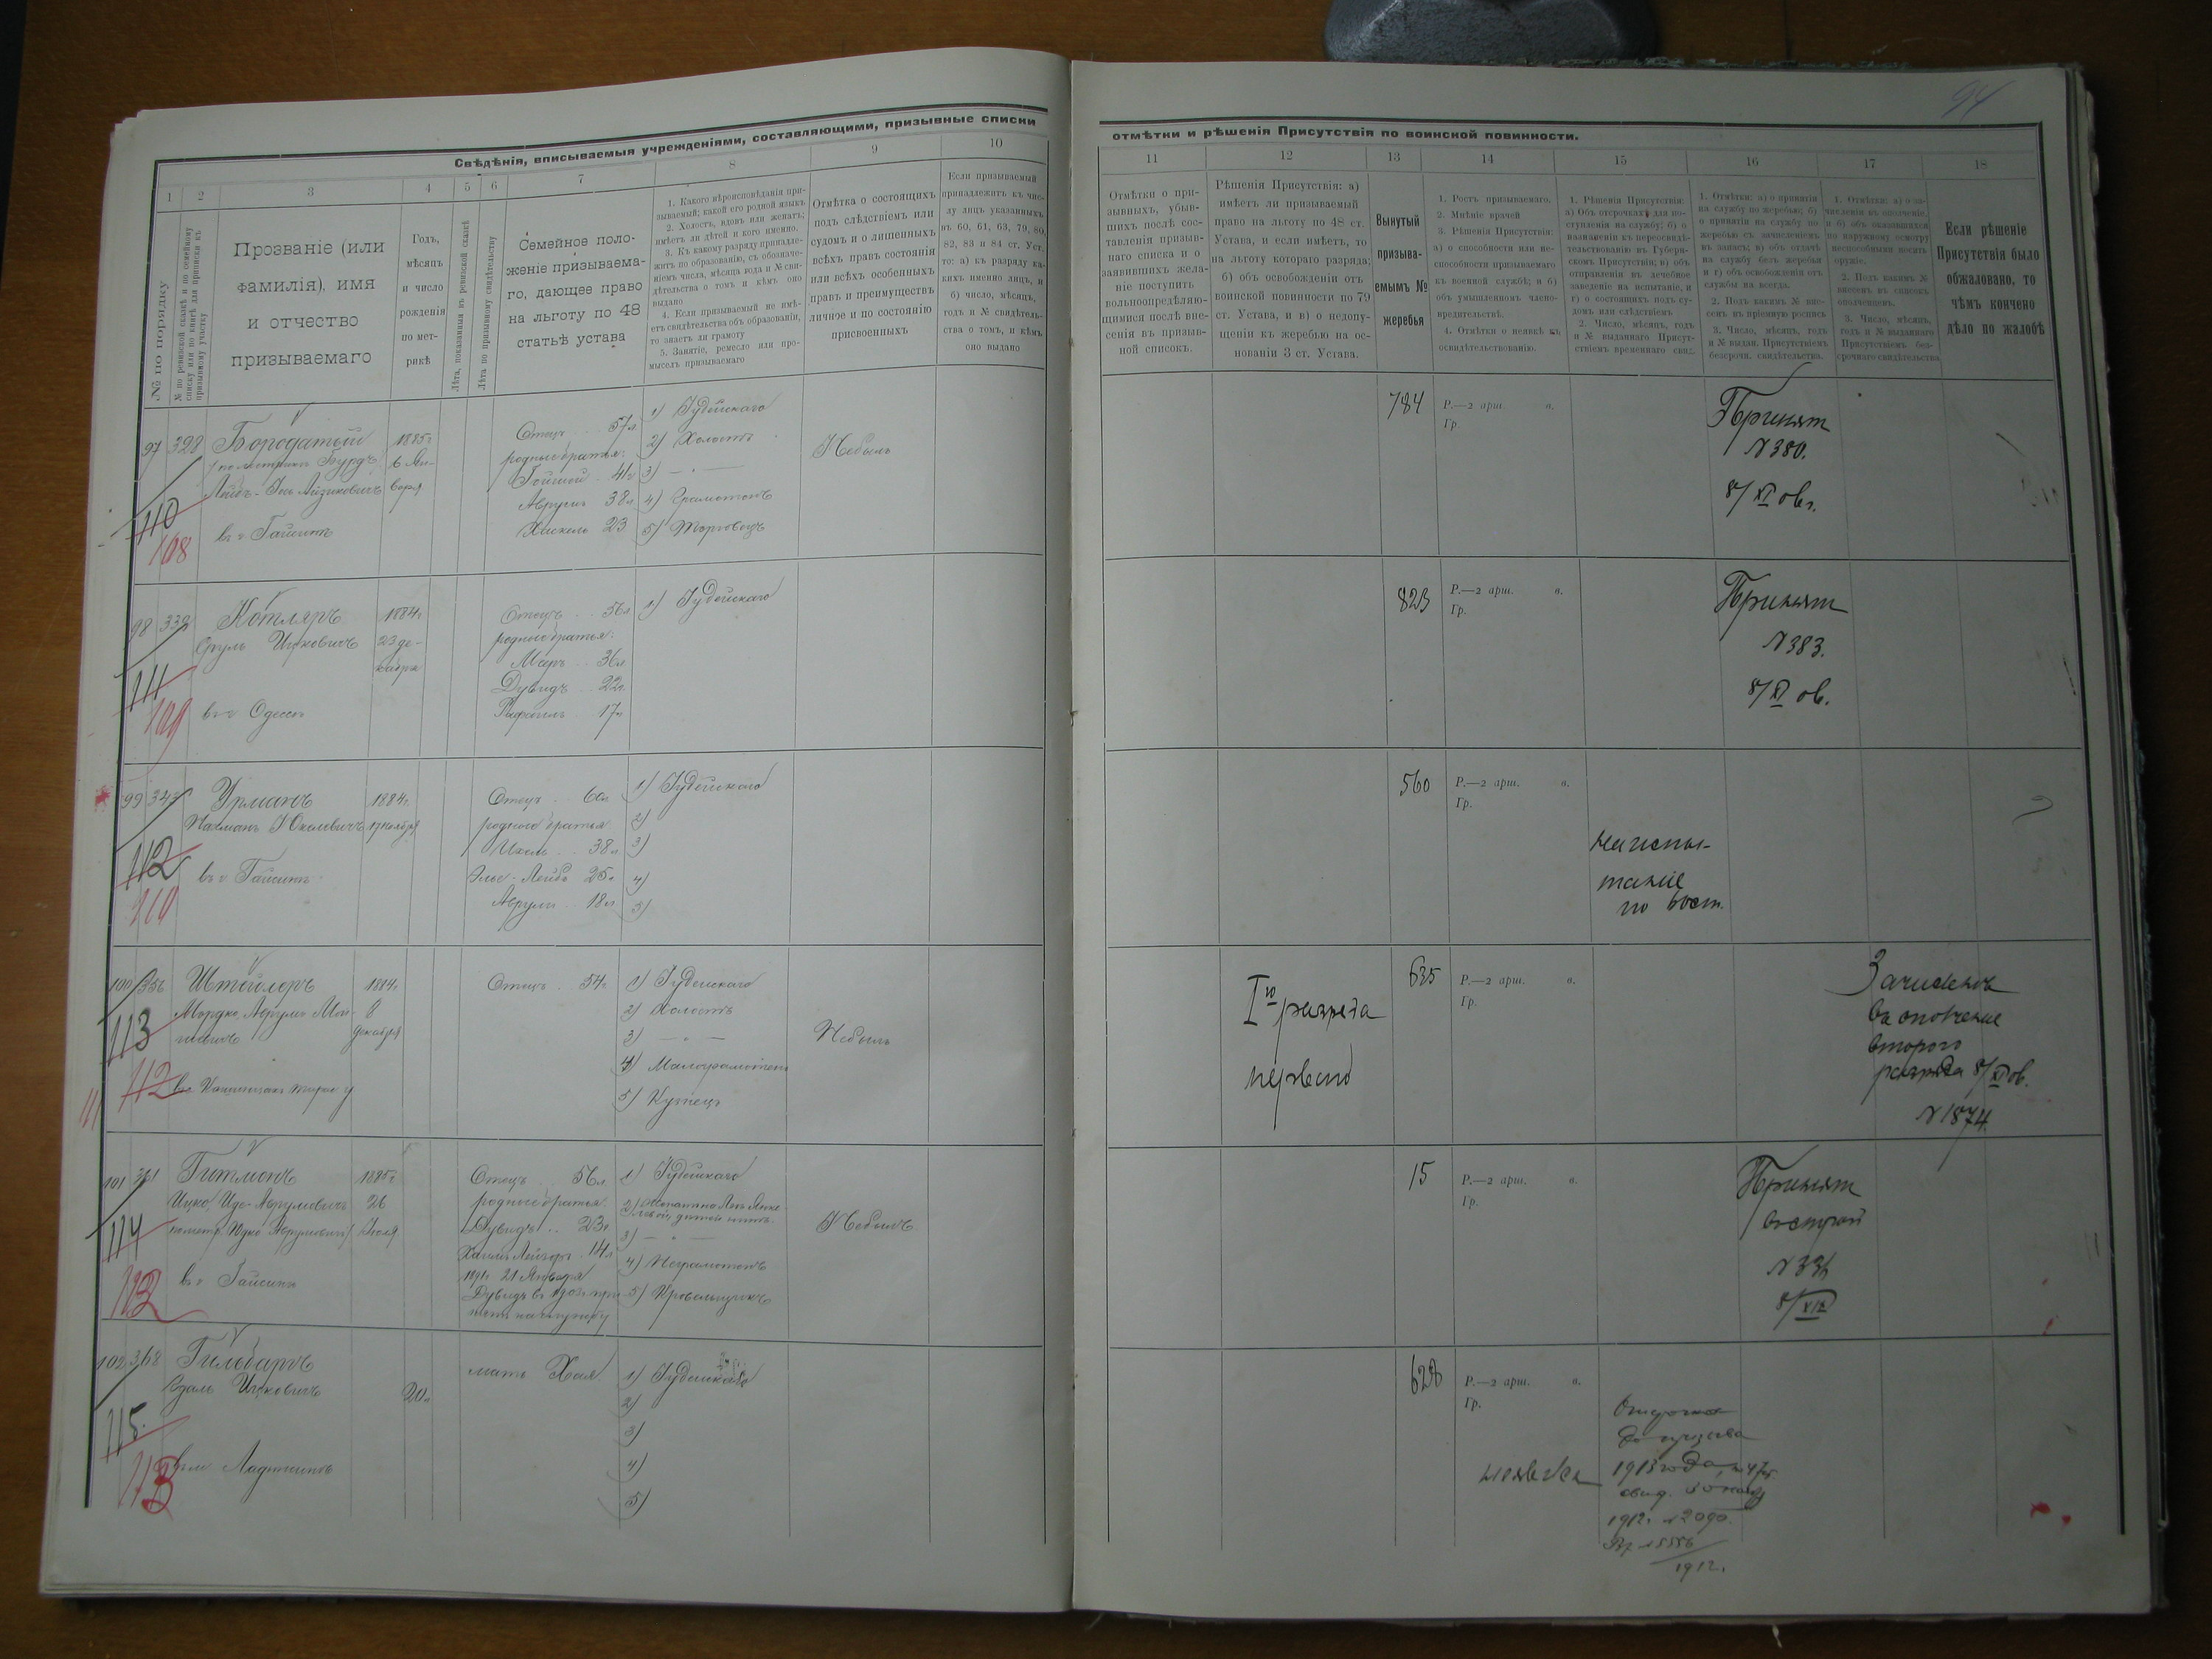 94
Свѣдѣнія, вписываемыя учрежденіями, составляющими, призывные списки
отмѣтки и рѣшенія Присутствія по воинской повинности.
1 2 3 4 5 6 7 8 9 10
11 12 13 14 15 16 17 18
№ по порядку
№ по ревизской сказкѣ и по семейному
списку или по книгѣ для приписки къ
призывному участку
Прозваніе (или
фамилія), имя
и отчество
призываемаго
Годъ,
мѣсяцъ
и число
рожденія
по мет-
рикѣ
Лѣта, показанныя въ ревизской сказкѣ
Лѣта по призывному свидѣтельству
Семейное поло-
женіе призываема-
го, дающее право
на льготу по 48
статьѣ устава
1. Какого вѣроисповѣданія при-
зываемый; какой его родной языкъ
2. Холостъ, вдовъ или женатъ;
имѣетъ ли дѣтей и кого именно.
3. Къ какому разряду принадле-
житъ по образованію, съ обозначе-
ніемъ числа, мѣсяца года и № сви-
дѣтельства о томъ и кѣмъ оно
выдано
4. Если призываемый не имѣ-
етъ свидѣтельства объ образованіи,
то знаетъ ли грамоту
5. Занятіе, ремесло или про-
мыселъ призываемаго
Отмѣтка о состоящихъ
подъ слѣдствіемъ или
судомъ и о лишенныхъ
всѣхъ правъ состоянія
или всѣхъ особенныхъ
правъ и преимуществъ
личное и по состоянію
присвоенныхъ
Если призываемый
принадлежитъ къ чис-
лу лицъ указанныхъ
въ 60, 61, 63, 79, 80,
82, 83 и 84 ст. Уст.
то: а) къ разряду ка-
кихъ именно лицъ, и
б) число, мѣсяцъ,
годъ и № свидѣтель-
ства о томъ, и кѣмъ
оно выдано
Отмѣтки о при-
зывныхъ, убыв-
шихъ послѣ сос-
тавленія призыв-
наго списка и о
заявившихъ жела-
ніе поступить
вольноопредѣляю-
щимися послѣ вне-
сенія въ призыв-
ной списокъ.
Рѣшенія Присутствія: а)
имѣетъ ли призываемый
право на льготу по 48 ст.
Устава, и если имѣетъ, то
на льготу котораго разряда;
б) объ освобожденіи отъ
воинской повинности по 79
ст. Устава, и в) о недопу-
щеніи къ жеребью на ос-
нованіи 3 ст. Устава.
Вынутый
призыва-
емымъ №
жеребья
1. Ростъ призываемаго.
2. Мнѣніе врачей
3. Рѣшенія Присутствія:
а) о способности или не-
способности призываемаго
къ военной службѣ; и б)
объ умышленномъ члено-
вредительствѣ.
4. Отмѣтки о неявкѣ къ
освидѣтельствованію.
1. Рѣшенія Присутствія:
а) Объ отсрочкахъ для по-
ступленія на службу; б) о
назначеніи къ переосвидѣ-
тельствованію въ Губерн-
скомъ Присутствіи; в) объ
отправленіи въ лечебное
заведеніе на испытаніе, и
г) о состоящихъ подъ су-
домъ или слѣдствіемъ
2. Число, мѣсяцъ, годъ
и № выданнаго Присут-
ствіемъ временнаго свид.
1. Отмѣтки: а) о принятіи
на службу по жеребью; б)
о принятіи на службу по
жеребью съ зачисленіемъ
въ запасъ; в) объ отдачѣ
на службу безъ жеребья
и г) объ освобожденіи отъ
службы на всегда.
2. Подъ какимъ № вне-
сенъ въ пріемную роспись
3. Число, мѣсяцъ, годъ
и № выдан. Присутствіемъ
безсрочн. свидѣтельства.
1. Отмѣтки: а) о за-
численіи въ ополченіе,
и б) объ оказавшихся
по наружному осмотру
неспособными носить
оружіе.
2. Подъ какимъ №
внесенъ въ списокъ
ополченцевъ.
3. Число, мѣсяцъ,
годъ и № выданнаго
Присутствіемъ без-
срочнаго свидѣтельства
Если рѣшеніе
Присутствія было
обжаловано, то
чѣмъ кончено
дѣло по жалобѣ
97 328 Бородатый 1885г
6 Ян-
варя
Лейб- Айзиковичъ
110
108
въ г Гайсинѣ
Отецъ 57л
родные братья:
41г
Аврумъ 38л
Хискель 23
1) Іудейскаго
2) Холостъ
3) — " —
4) Грамотенъ
5) Торговецъ
Небылъ
784 Р.—2 арш. в.
Гр.
Принят
№380.
8/XI 06г.
98 339 Котляръ 1884г
Сруль Ицковичъ 23 де-
кабря
111
109
въ г Одессѣ
Отецъ 56л
родные братья:
Меръ 36л
Дувидъ 22г
Рафаилъ 17л
1) Іудейскаго
823 Р.—2 арш. в.
Гр.
Принят
№383.
8/XI 06.
99 Урманъ 1884г.
Нахманъ 17 ноября
112
110
въ г. Гайсинѣ
Отецъ 60л
родные братья
38л
Эльс-Лейба 25л
Аврумъ 18л
1) Іудейскаго
2)
3)
4)
5)
560 Р.—2 арш. в.
Гр.
на испы-
таніе
100 356 1884г.
Мордко Аврумъ Мой- 8
декабря
113
112
111
Отецъ 54г
1) Іудейскаго
2) Холостъ
3) — " —
4) Малограмотенъ
5) Кузнецъ
Небылъ
Iго разряда
первый
635 Р.—2 арш. в.
Гр.
Зачисленъ
въ ополченіе
второго
разряда 8/XI 06.
№1874.
101 361 Гитманъ 1885г
Ицко Иде-Аврумовичъ 26
Іюля
114
въ г Гайсинѣ
Отецъ 56л
родные братья:
Дувидъ 23г
Хаимъ Лейзоръ 14л
1891г 21 Января
Дувидъ въ 1903г при-
нятъ на службу
1) Іудейскаго
3) — " —
4) Неграмотенъ
5) Кровельщикъ
Небылъ
15 Р.—2 арш. в.
Гр.
Принят
8/XI
102 368
Ицковичъ 20л
115
113
мать Хая
1) Іудейскаго
2)
3)
4)
5)
628 Р.—2 арш. в.
Гр.
неявка
Отсрочка
до призыва
1913 года
1912г. №2090.
1912.